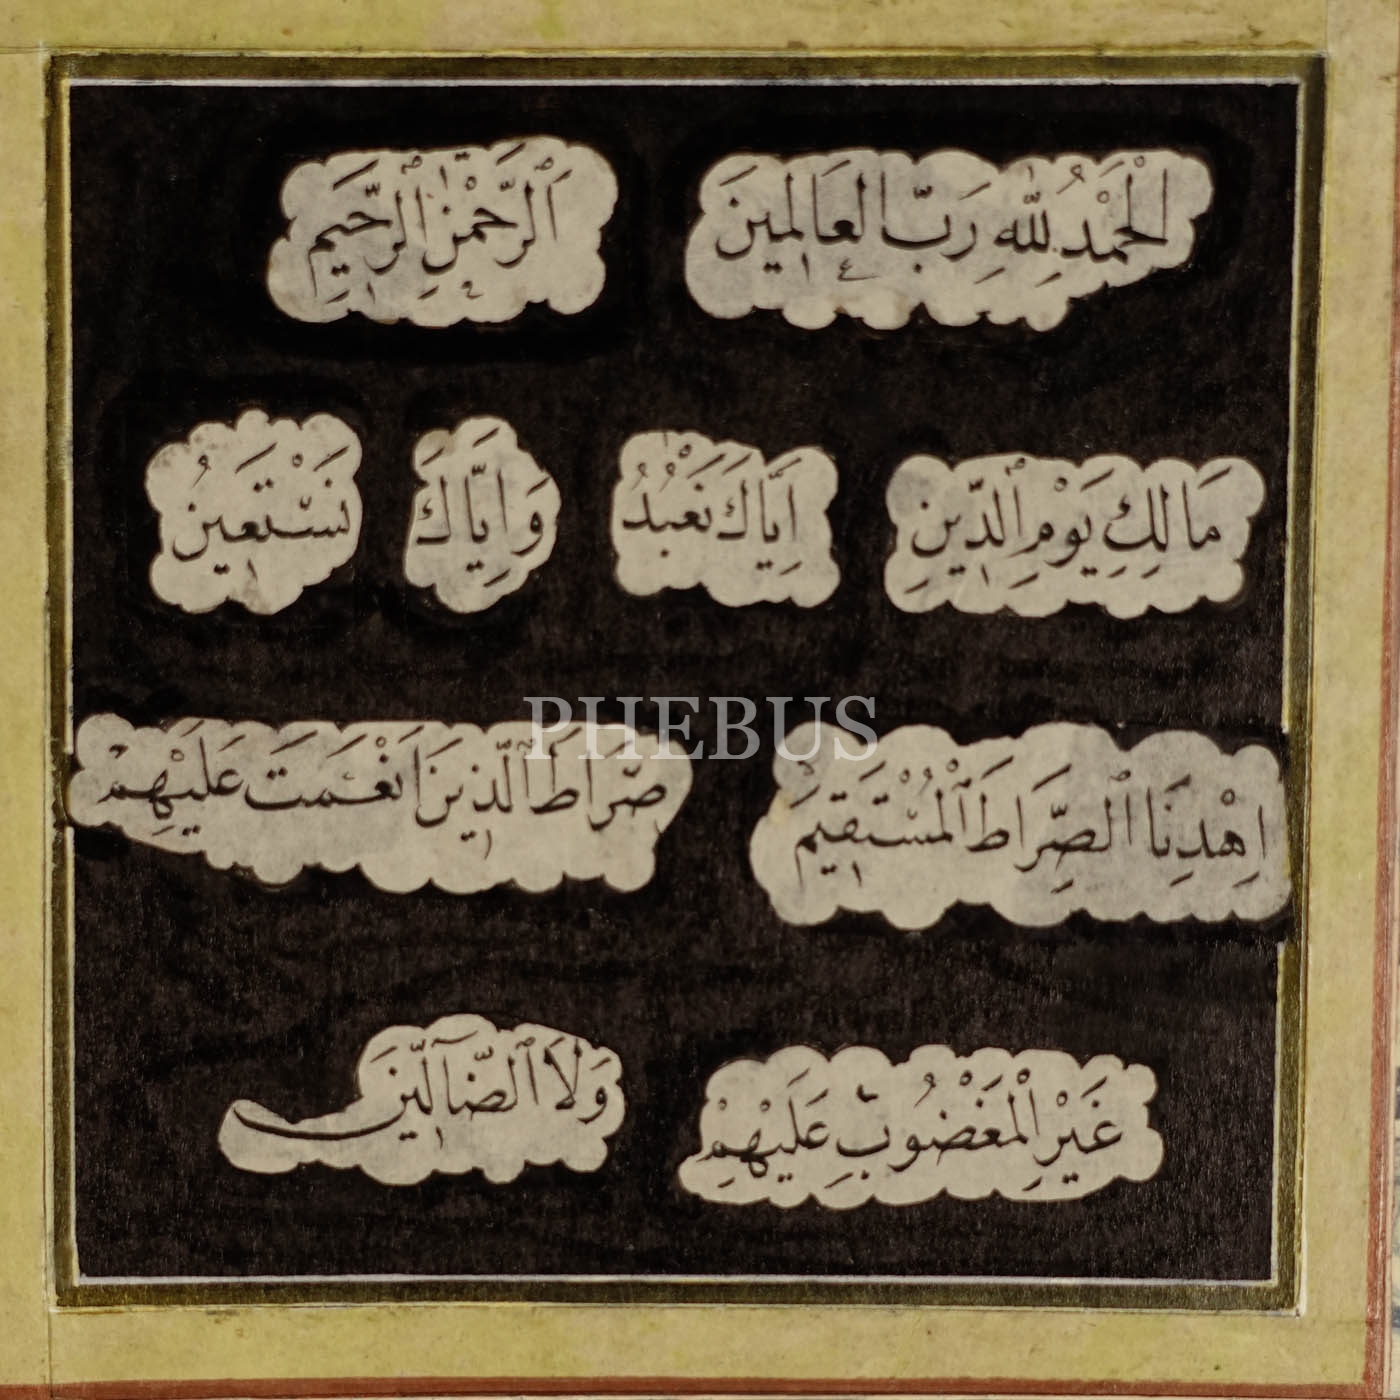 اَلْحَمْدُ لِلّٰهِ رَبِّ الْعَالَمِينَ اَلرَّحْمٰنِ الرَّحِيمِ
مَالِكِ يَوْمِ الدِّينِ اِيَّاكَ نَعْبُدُ وَاِيَّاكَ نَسْتَعِينُ
PHEBUS
اِهْدِنَا الصِّرَاطَ الْمُسْتَقِيمَ صِرَاطَ الَّذِينَ اَنْعَمْتَ عَلَيْهِمْ
غَيْرِ الْمَغْضُوبِ عَلَيْهِمْ وَلَا الضَّٓالِّينَ